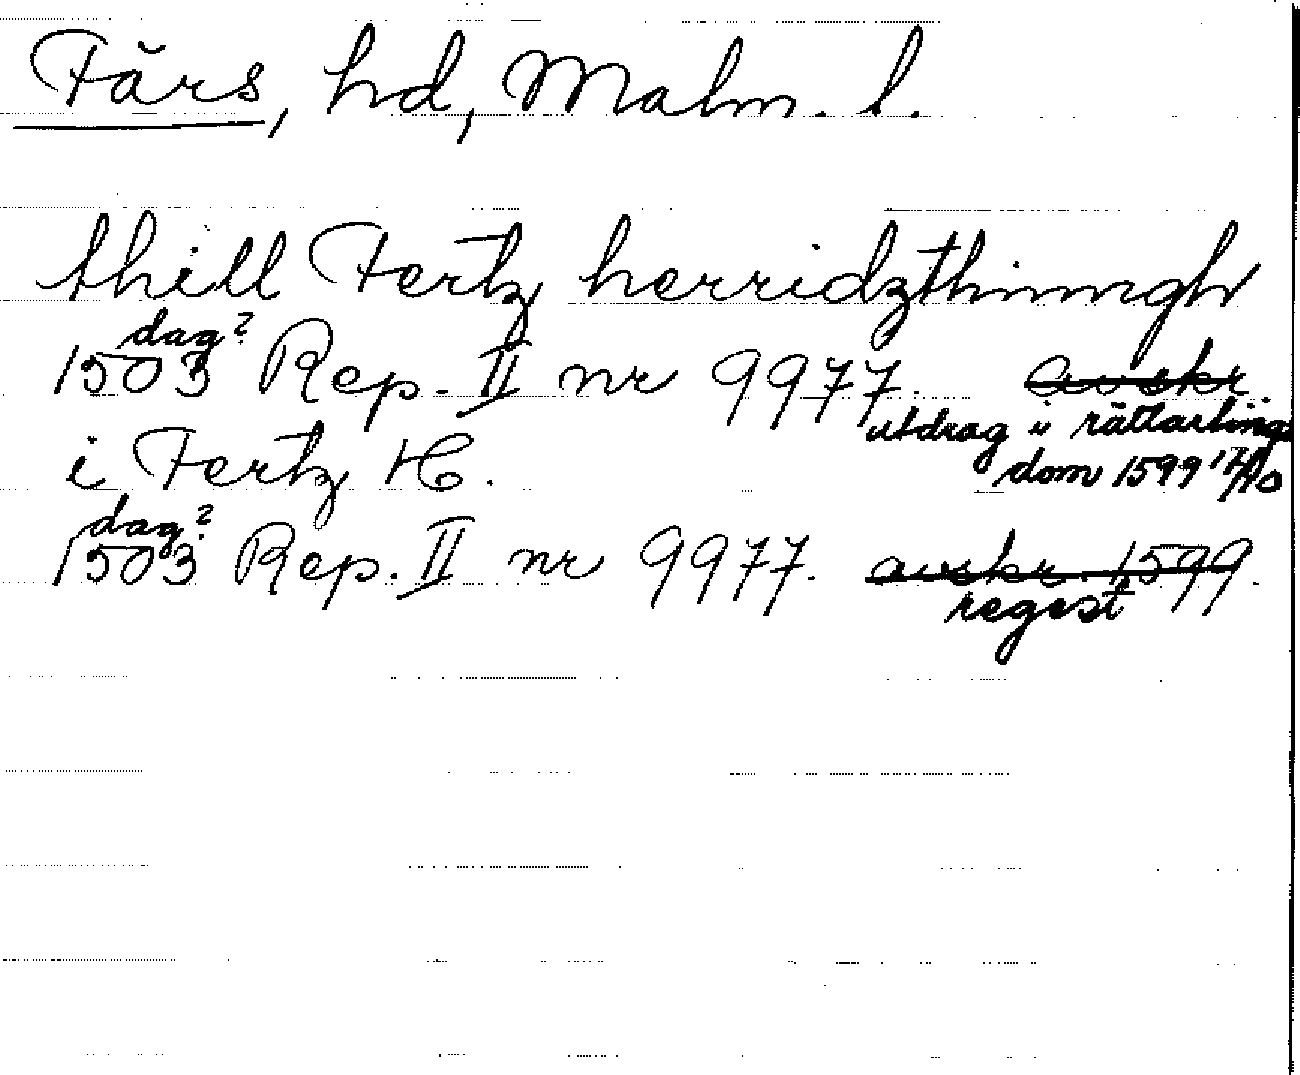 Färs, hd, Malm. l.
thill Fertz herridzthinngh
dag?
1503 Rep. II nr 9977. avskr
utdrag i rättarting
dom 1599 17/10
i Fertz H.
dag?
1503 Rep. II nr 9977. avskr. 1599.
regest